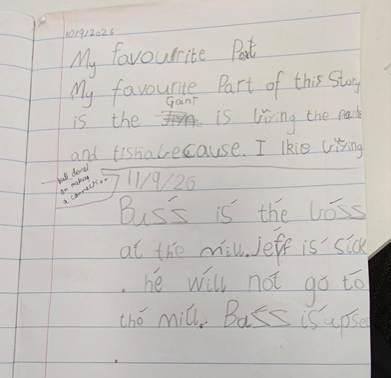 10/9/2026
My favourite Part
My favourite Part of this Story
Gaint
is the is living the
and because. I lkie living
well done!
on making
a connection.
11/9/26
Buss is the boss
at the mill. Jeff is sick
. he will not go to
the mill. Bass is upse